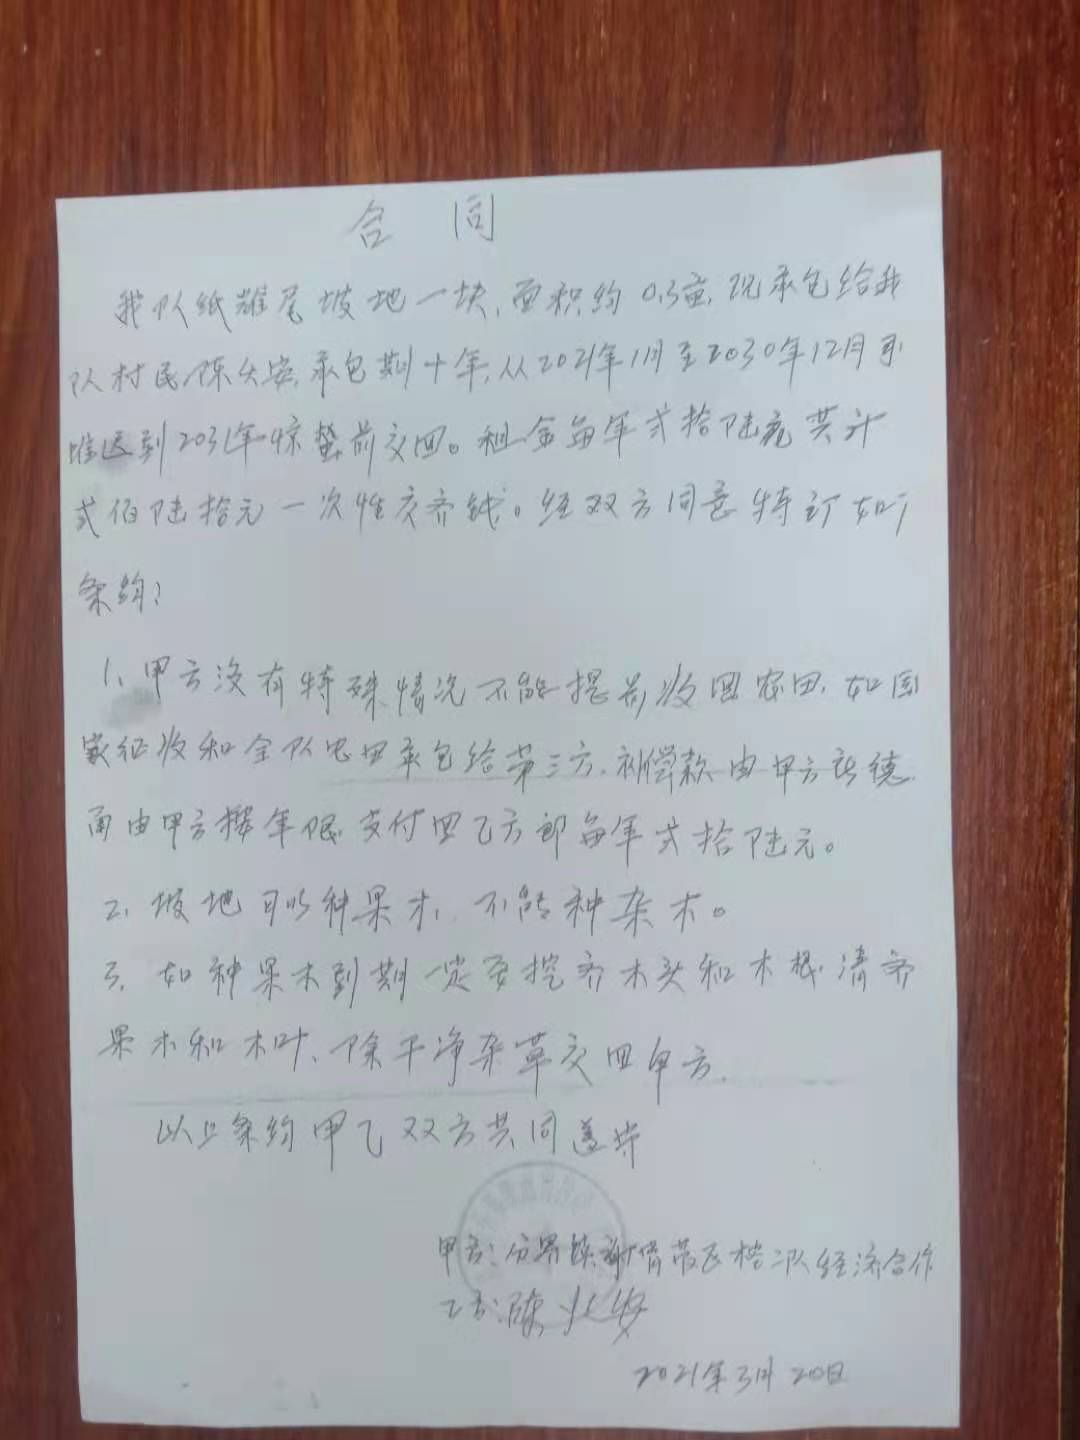 合 同
我队纸雞尾坡地一块，面积约 0.3亩，现承包给我
队村民陈 安，承包期十年，从2021年1月至2030年12月
推迟到2031年惊蛰前交回。租金每年弍拾陆元共计
弍佰陆拾元一次性交齐钱。经双方同意特订如下
条约：
1、甲方没有特殊情况不能提前收回农田，如国
家征收和全队 田承包给第三方，补偿款由甲方
由甲方按年限支付回乙方即每年弍拾陆元。
2、坡地可以种果木，不能种杂木。
3、如种果木到期一定要挖齐木头和木根，清齐
果木和木叶、除干净杂草交回甲方。
以上条约甲乙双方共同遵守
甲方：分界镇 队经济合作
乙方：陈 安
2021年3月20日